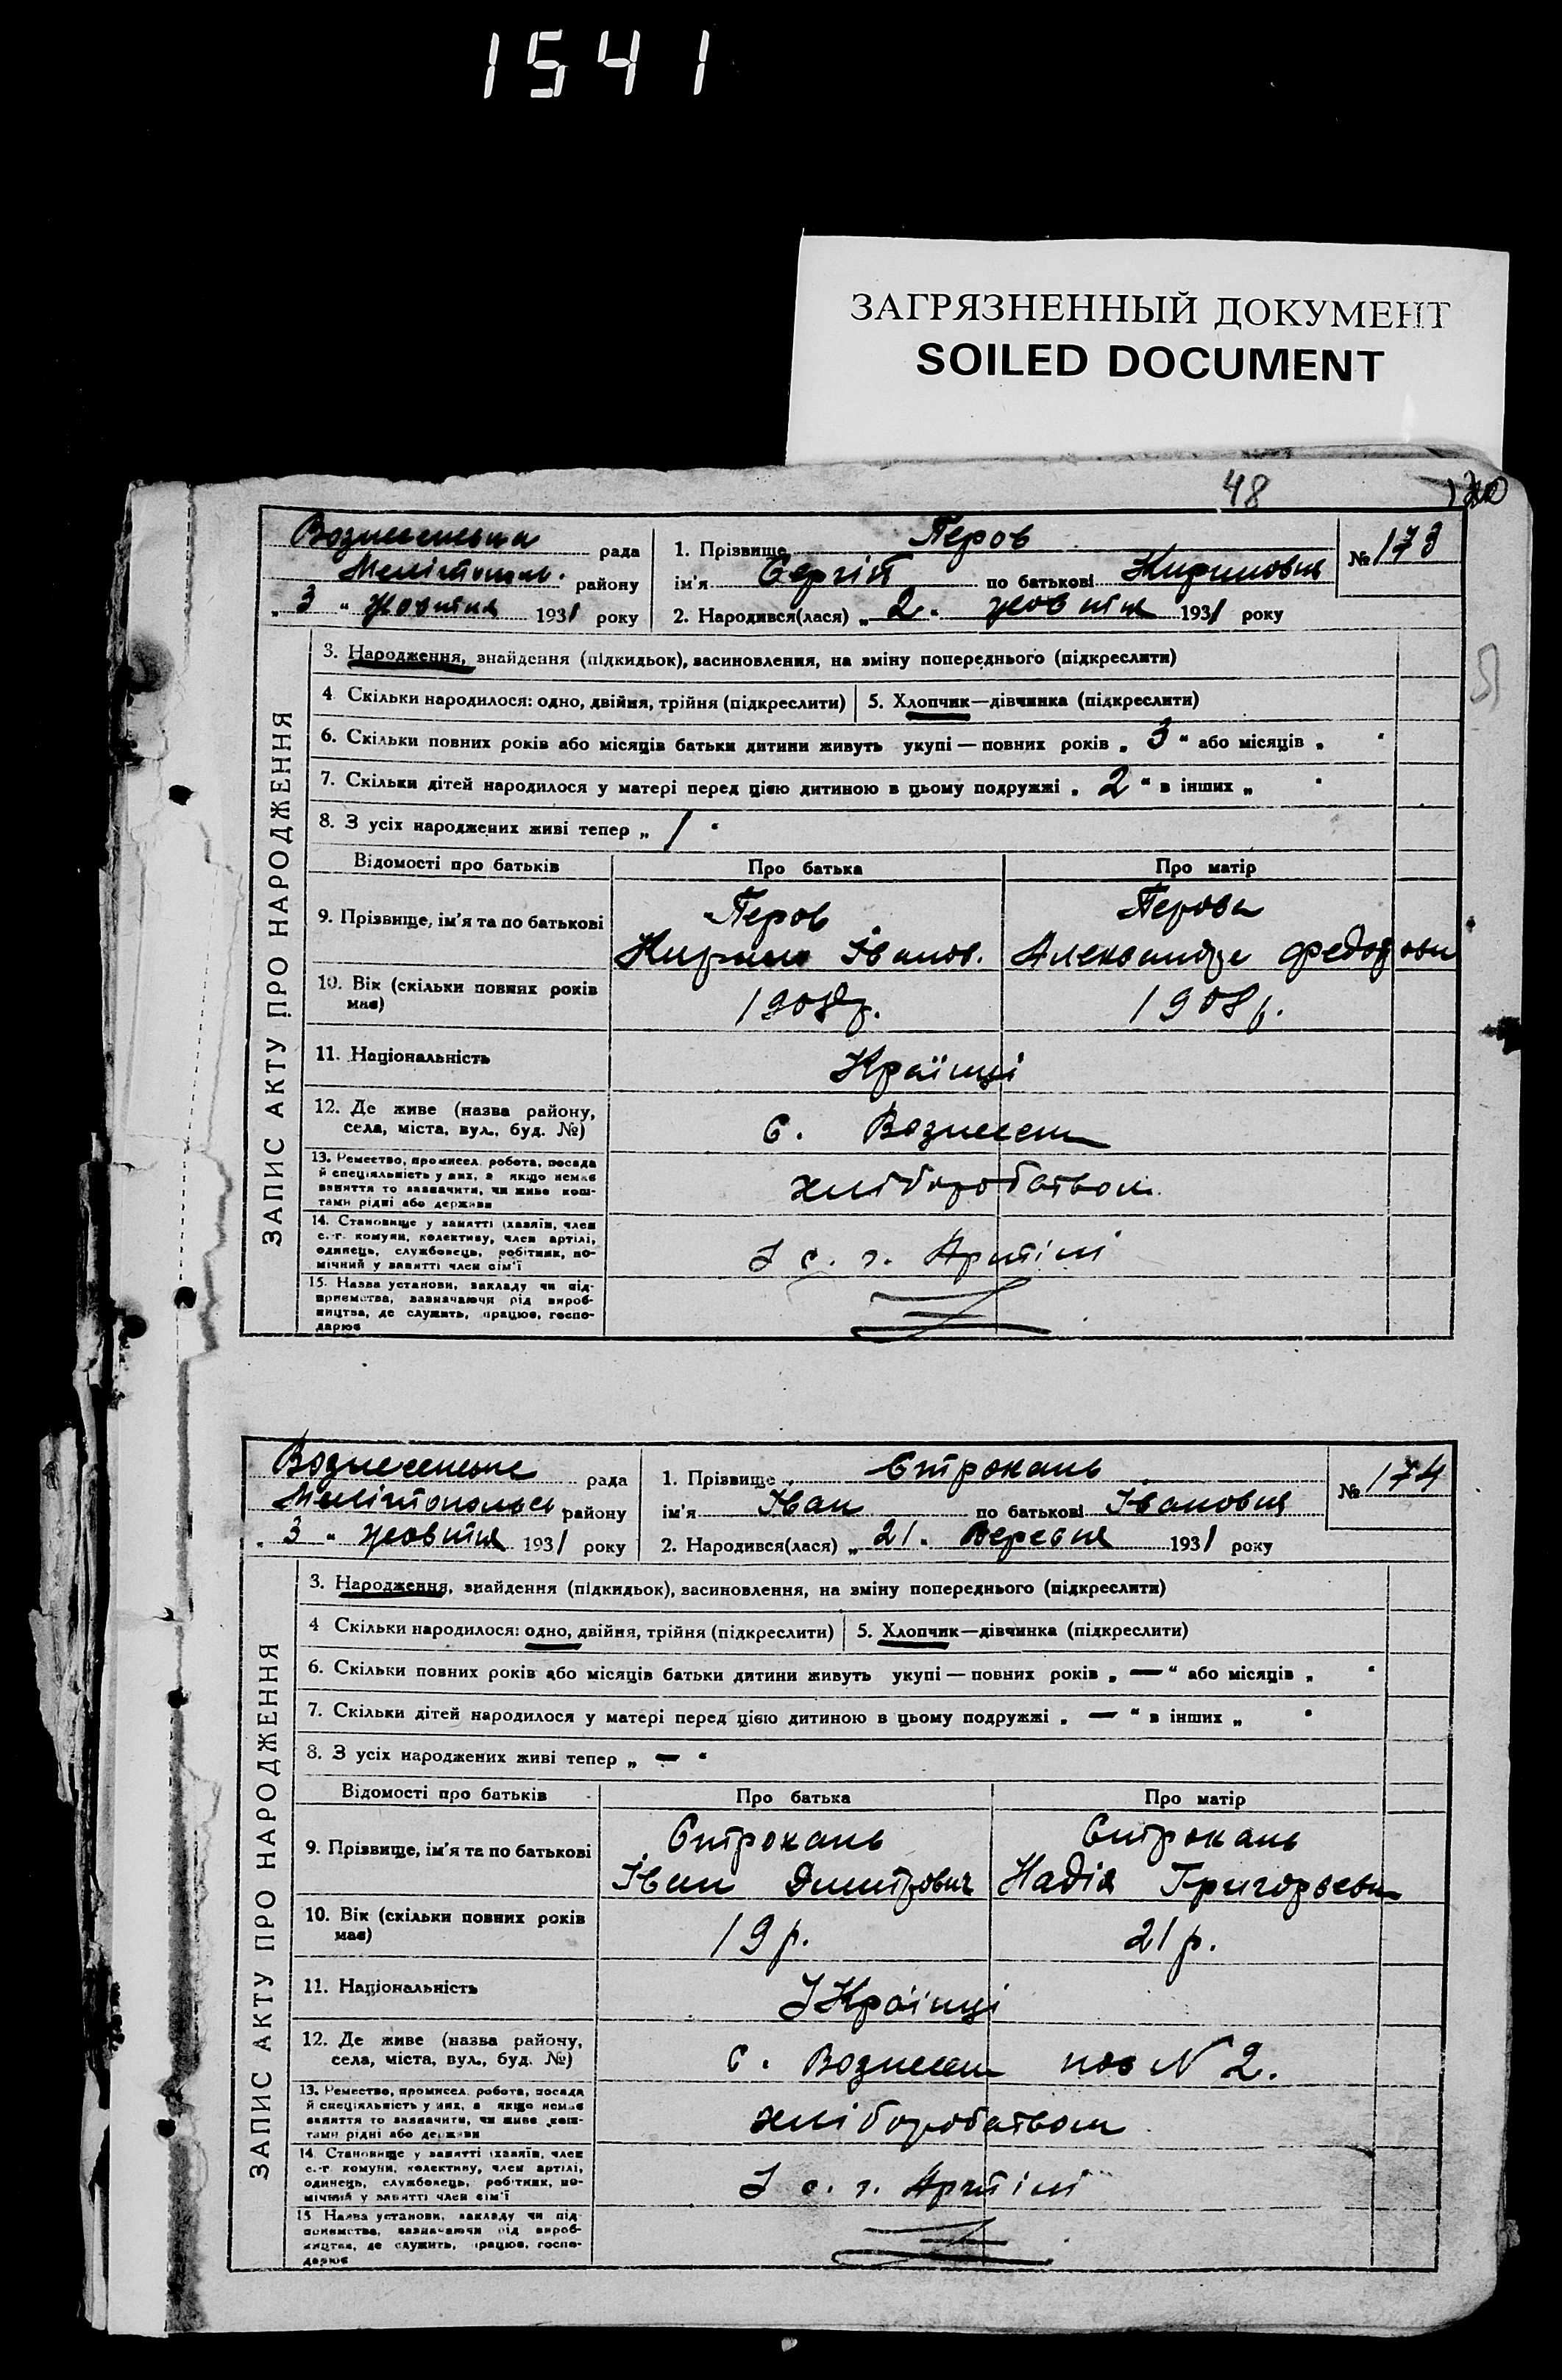 1541
ЗАГРЯЗНЕННЫЙ ДОКУМЕНТ
SOILED DOCUMENT
48
Вознесенська рада
Мелітополь. району
„ 3 “ Жовтня 1931 року
1. Прізвище Перов
ім'я Сергій по батькові Кирилович
2. Народився(лася) „ 2 “ жовтня 1931 року
№ 173
ЗАПИС АКТУ ПРО НАРОДЖЕННЯ
3. Народження, знайдення (підкидьок), засиновлення, на зміну попереднього (підкреслити)
4. Скільки народилося: одно, двійня, трійня (підкреслити) 5. Хлопчик—дівчинка (підкреслити)
6. Скільки повних років або місяців батьки дитини живуть укупі — повних років „ 3 “ або місяців „ “
7. Скільки дітей народилося у матері перед цією дитиною в цьому подружжі „ 2 “ в інших „ “
8. З усіх народжених живі тепер „ 1 “
Відомості про батьків Про батька Про матір
9. Прізвище, ім'я та по батькові
Перов Перова
Кирило Іванов. Александра Федоровн
10. Вік (скільки повних років має)
1908р. 1908р.
11. Національність Країнці
12. Де живе (назва району,
села, міста, вул., буд. №)
с. Вознесен
13. Ремество, промисел, робота, посада
й спеціяльність у них, а якщо немає
заняття то зазначити, чи живе кош-
тами рідні або держави
хліборобством
14. Становище у занятті (хазяїн, член
с.-г. комуни, колективу, член артілі,
одинець, службовець, робітник, по-
мічний у занятті член сім'ї
У с. г. Артілі
15. Назва установи, закладу чи під-
приємства, зазначаючи рід вироб-
ництва, де служить, працює, госпо-
дарює
Вознесенське рада
Мелітопольск району
„ 3 “ жовтня 1931 року
1. Прізвище Строкань
ім'я Іван по батькові Іванович
2. Народився(лася) „ 21 “ Вересня 1931 року
№ 174
ЗАПИС АКТУ ПРО НАРОДЖЕННЯ
3. Народження, знайдення (підкидьок), засиновлення, на зміну попереднього (підкреслити)
4 Скільки народилося: одно, двійня, трійня (підкреслити) 5. Хлопчик—дівчинка (підкреслити)
6. Скільки повних років або місяців батьки дитини живуть укупі — повних років „ — “ або місяців „ “
7. Скільки дітей народилося у матері перед цією дитиною в цьому подружжі „ — “ в інших „ “
8. З усіх народжених живі тепер „ — “
Відомості про батьків Про батька Про матір
9. Прізвище, ім'я та по батькові
Строкань Строкань
Іван Дмитрович Надія Григорьевн
10. Вік (скільки повних років має)
19 р. 21 р.
11. Національність УКраїнці
12. Де живе (назва району,
села, міста, вул., буд. №)
с. Вознесен пос N 2.
13. Ремество, промисел, робота, посада
й спеціяльність у них, а якщо немає
заняття то зазначити, чи живе кош-
тами рідні або держави
хліборобством
14. Становище у занятті (хазяїн, член
с.-г. комуни, колективу, член артілі,
одинець, службовець, робітник, по-
мічний у занятті член сім'ї
У с. г. Артілі
15 Назва установи, закладу чи під-
приємства, зазначаючи рід вироб-
ництва, де служить, працює, госпо-
дарює